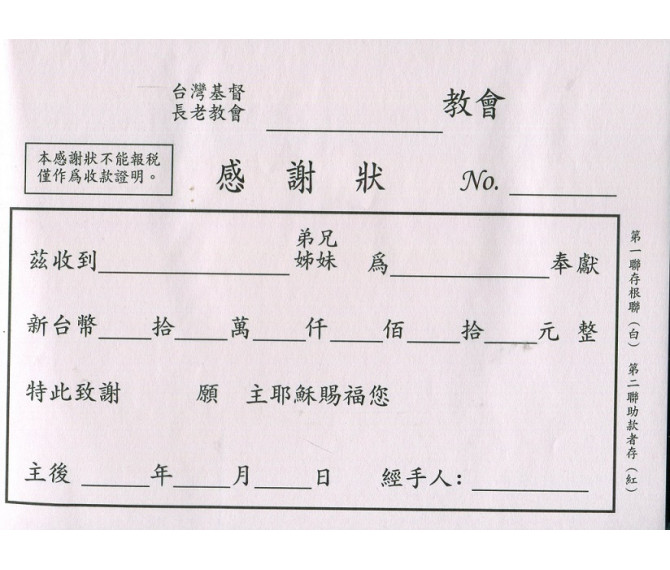 台灣基督
長老教會 ____________ 教會
本感謝狀不能報税
僅作爲收款證明。
感謝狀 No. ________
茲收到____________弟兄姊妹 爲____________奉獻
新台幣____拾____萬____仟____佰____拾____元 整
特此致謝 願 主耶穌賜福您
主後 _____年_____月_____日 經手人：_________
第一聯存根聯（白） 第二聯助款者存（紅）